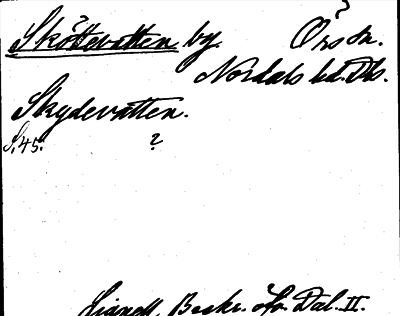 Sköttevatten by. Örs sn.
Nordals hd. Dls.
Skydevatten.
S. 45. ?
Lignell, Beskr. Dal. II.